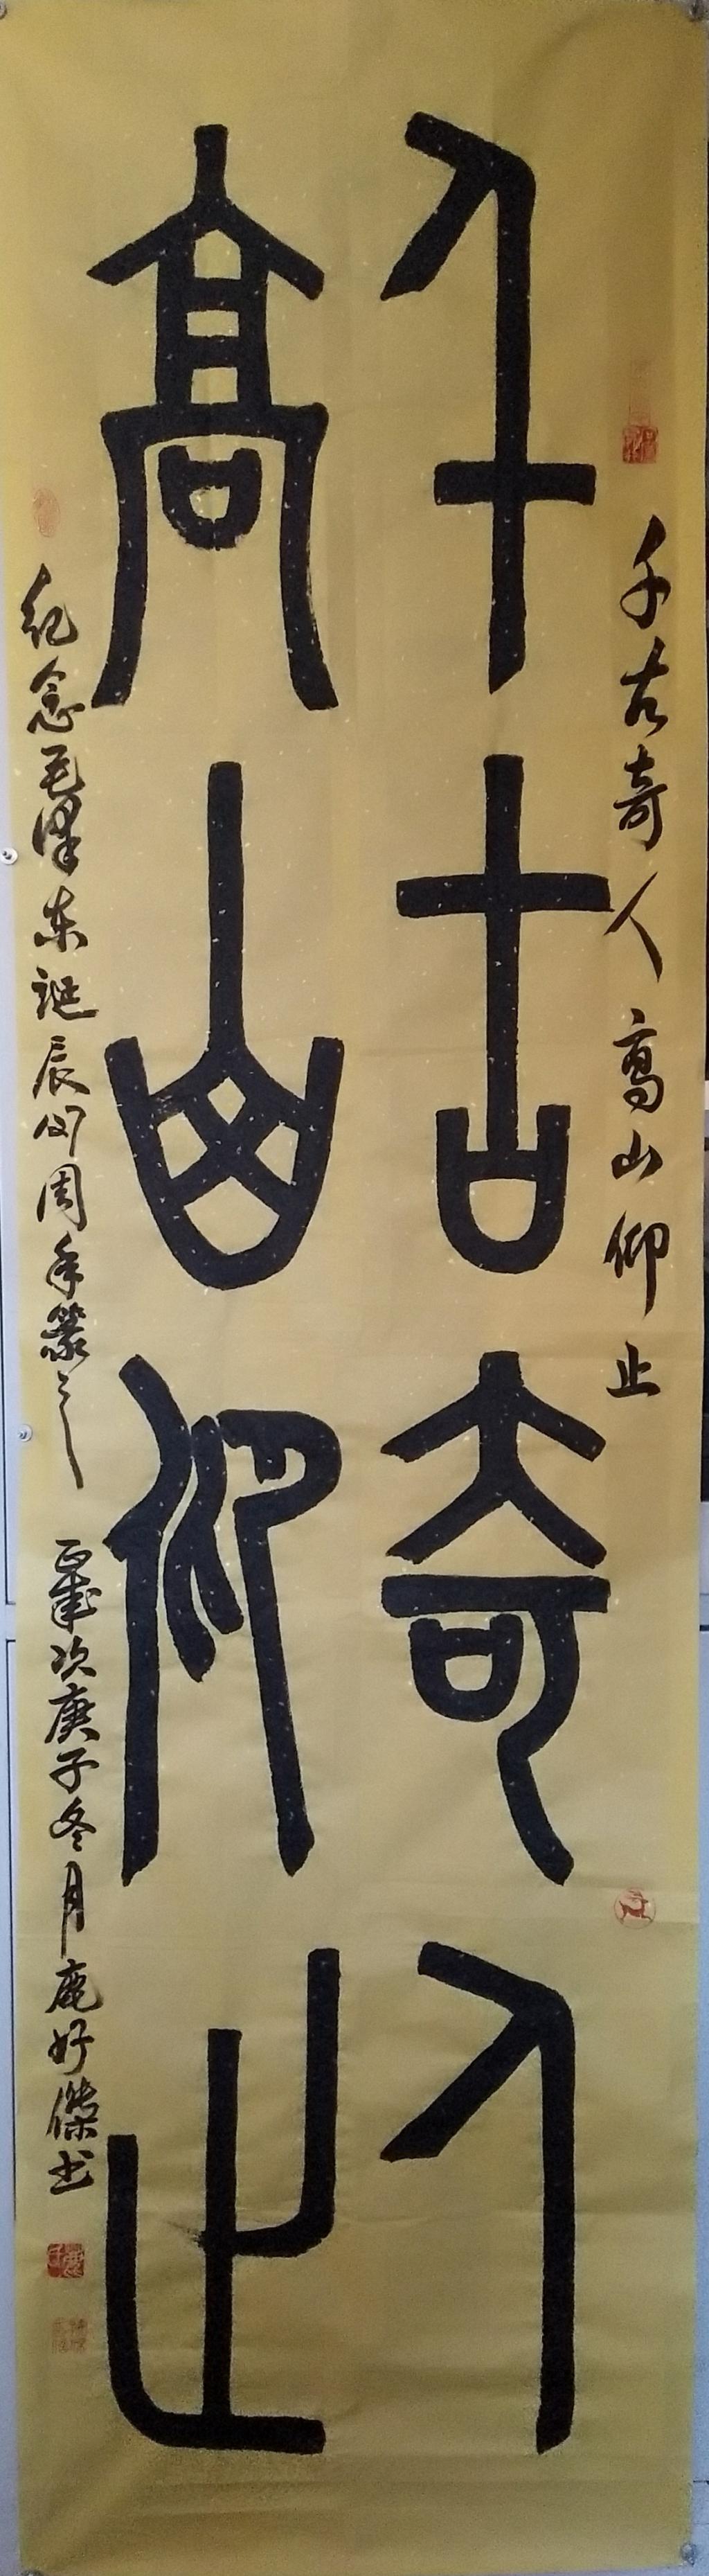 千古奇人 高山仰止
千古奇人
高山仰止
纪念毛泽东誕辰127周年篆之 歲次庚子冬月鹿好傑书